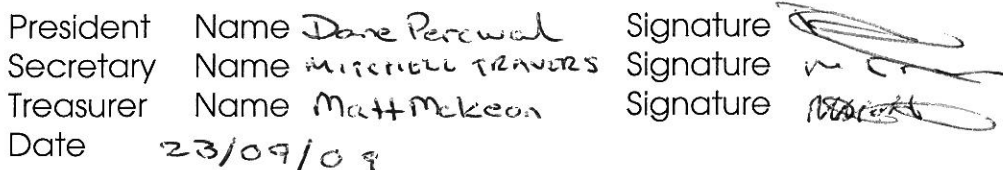 President Name Dane Percival Signature
Secretary Name MITCHELL TRAVERS Signature
Treasurer Name Matt McKeon Signature
Date 23/09/09